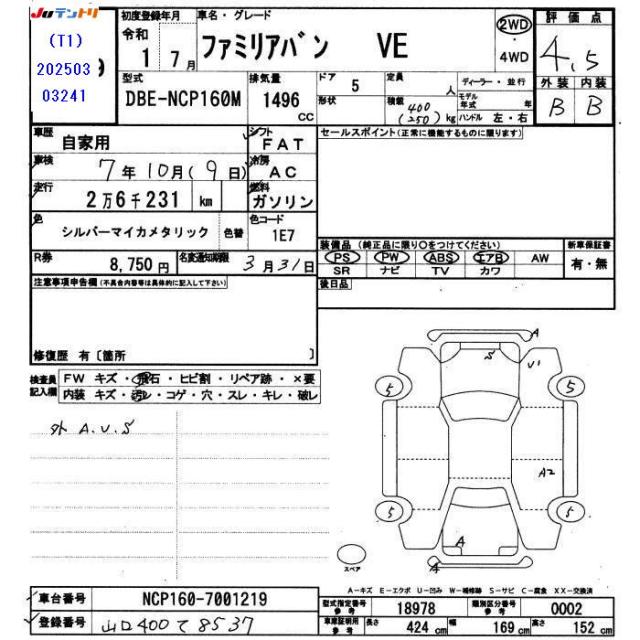 JUテントリ
(T1)
202503
03241
9
初度登録年月
令和
1年7月
車名・グレード
ファミリアバン VE
2WD
・
4WD
評価点
4.5
外装 内装
B B
型式
DBE-NCP160M
排気量
1496
cc
ドア 5
形状
定員 人
積載 400 (250) kg
ディーラー・並行
モデル年式 年
ハンドル 左・右
車歴 自家用
シフト FAT
車検 7年10月(9日)
冷房 AC
走行 2万6千231 km
燃料 ガソリン
色 シルバーマイカメタリック 色替
色コード 1E7
R券 8,750円
名変通知期限 3月31日
セールスポイント(正常に機能するものに限ります)
装備品(純正品に限り○をつけてください) 新車保証書
PS PW ABS エアB AW 有・無
SR ナビ TV カワ
後日品
注意事項申告欄(不具合内容等は具体的に記入して下さい)
修復歴 有〔箇所 〕
検査員記入欄
FW キズ・飛石・ヒビ割・リペア跡・×要
内装 キズ・汚レ・コゲ・穴・スレ・キレ・破レ
外 A.U.S
A
S
U1
5 5
A2
5 5
A
A
スペア
A-キズ E-エクボ U-凹み W-補修跡 S-サビ C-腐食 XX-交換済
車台番号 NCP160-7001219
登録番号 山口400て8537
型式指定番号参考 18978
類別区分番号参考 0002
車庫証明用参考 長さ 424cm 幅 169cm 高さ 152cm